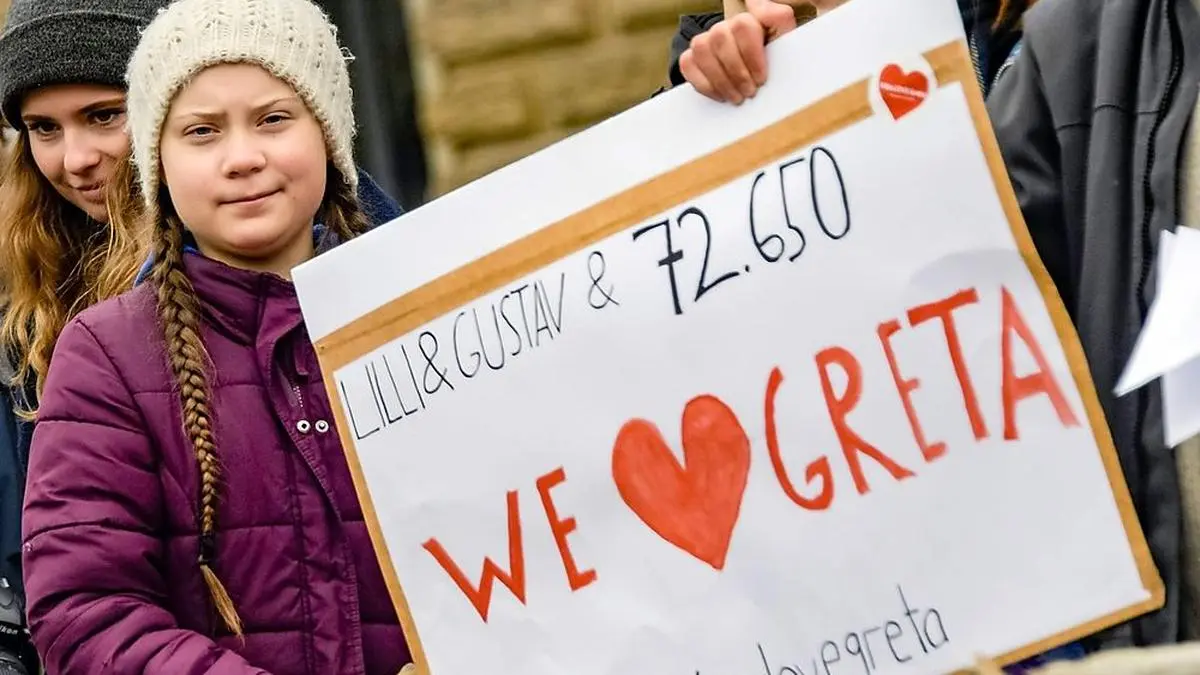 LILLI & GUSTAV & 72.650
WE ❤ GRETA
lovegreta